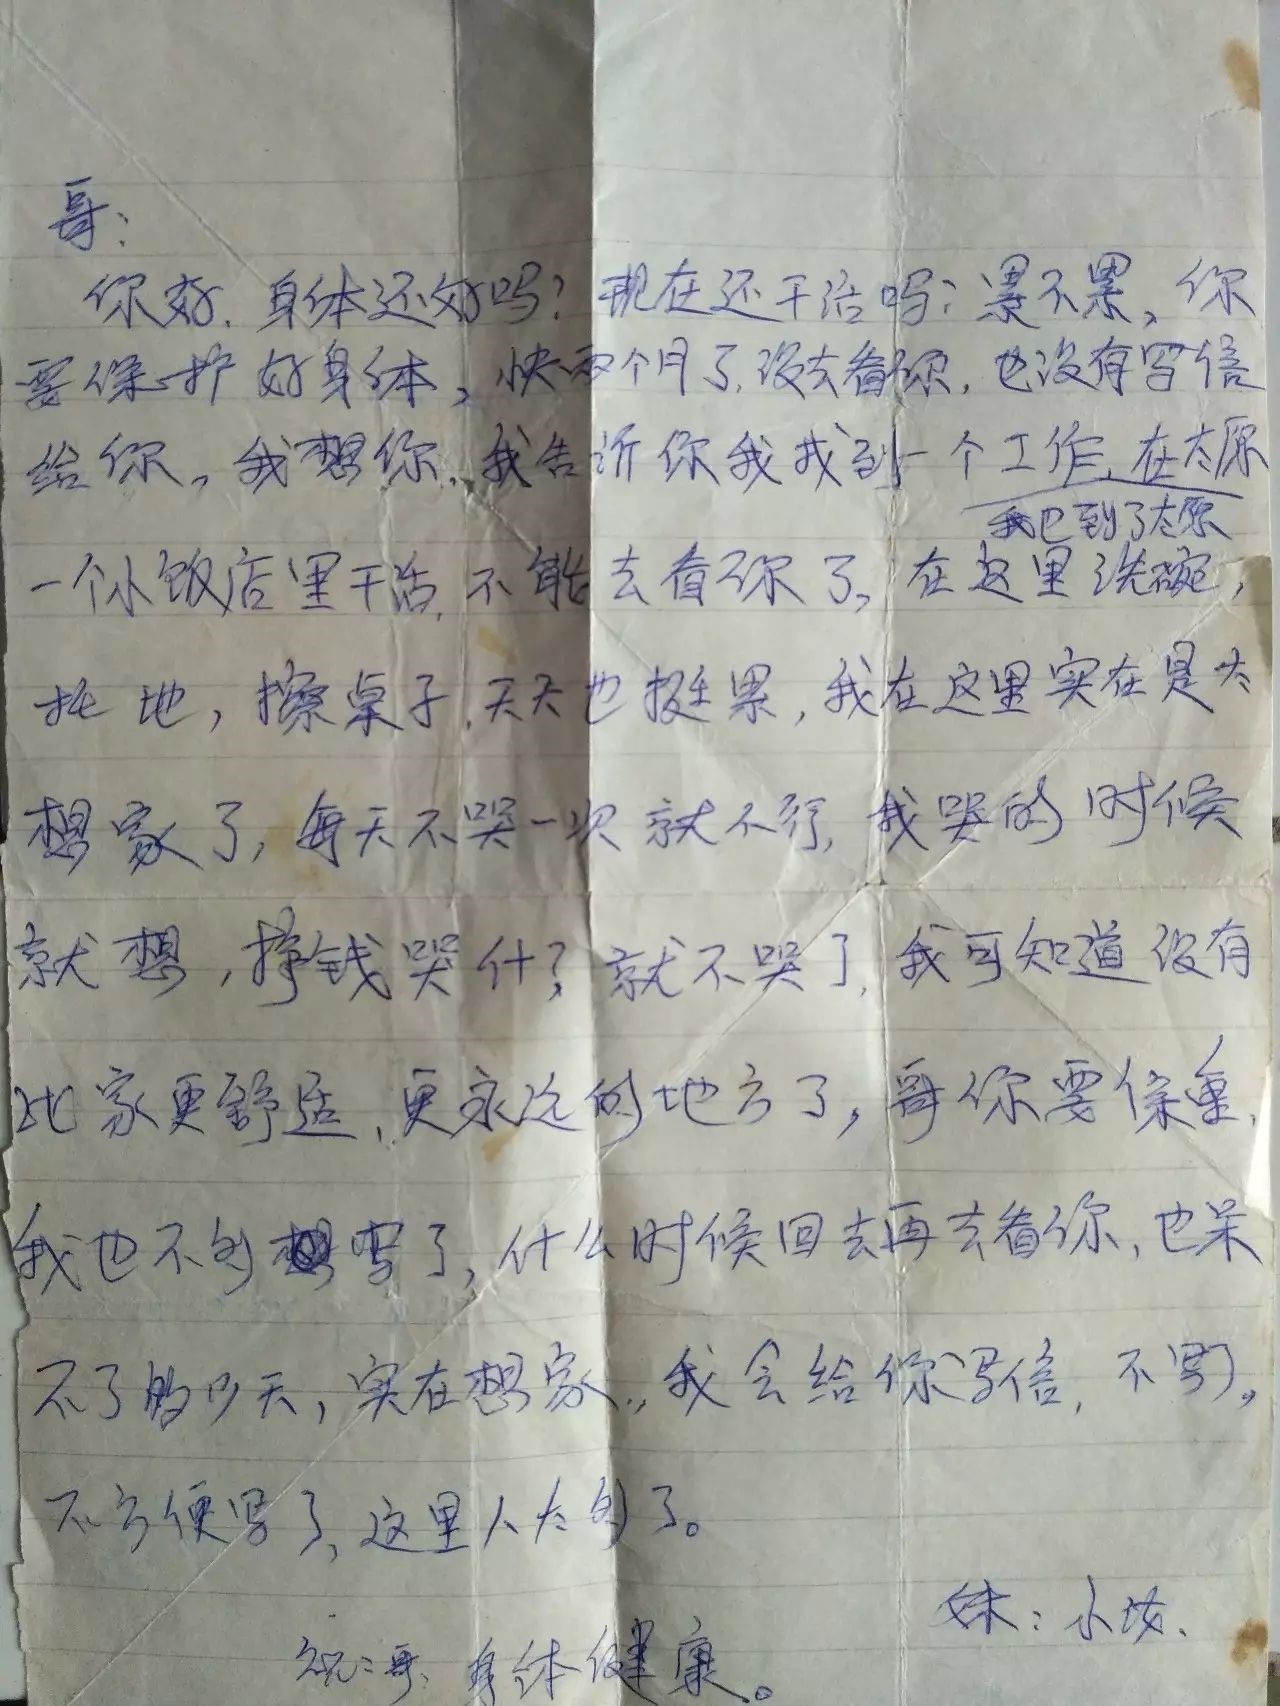 哥：
你好，身体还好吗？现在还干活吗？累不累，你
要保护好身体，快两个月了，没去看你，也没有写信
给你，我想你，我告诉你我找到一个工作，在太原
我已到了太原
一个小饭店里干活，不能去看你了，在这里洗碗，
拖地，擦桌子，天天也挺累，我在这里实在是太
想家了，每天不哭一次就不行，我哭的时候
就想，挣钱哭什？就不哭了，我可知道没有
比家更舒适，更永远的地方了，哥你要保重，
我也不多写了，什么时候回去再去看你，也呆
不了多少天，实在想家，我会给你写信，不写了。
不方便写了，这里人太多了。
妹：小
祝二哥，身体健康。